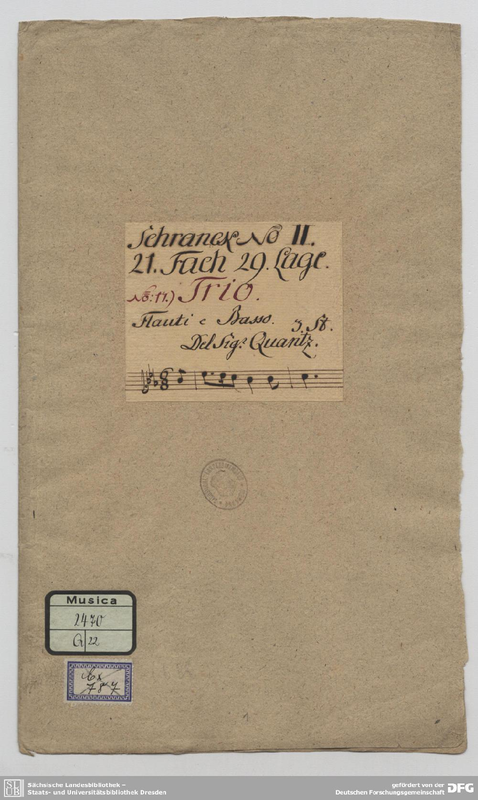 Schranck No II.
21. Fach 29. Lage.
No: 17.) Trio.
Flauti e Basso. 3. St.
Del Sigr. Quantz.
Musica
2470
G 22
Cx
787
1
Sächsische Landesbibliothek –
Staats- und Universitätsbibliothek Dresden
gefördert von der
Deutschen Forschungsgemeinschaft DFG
SLUB